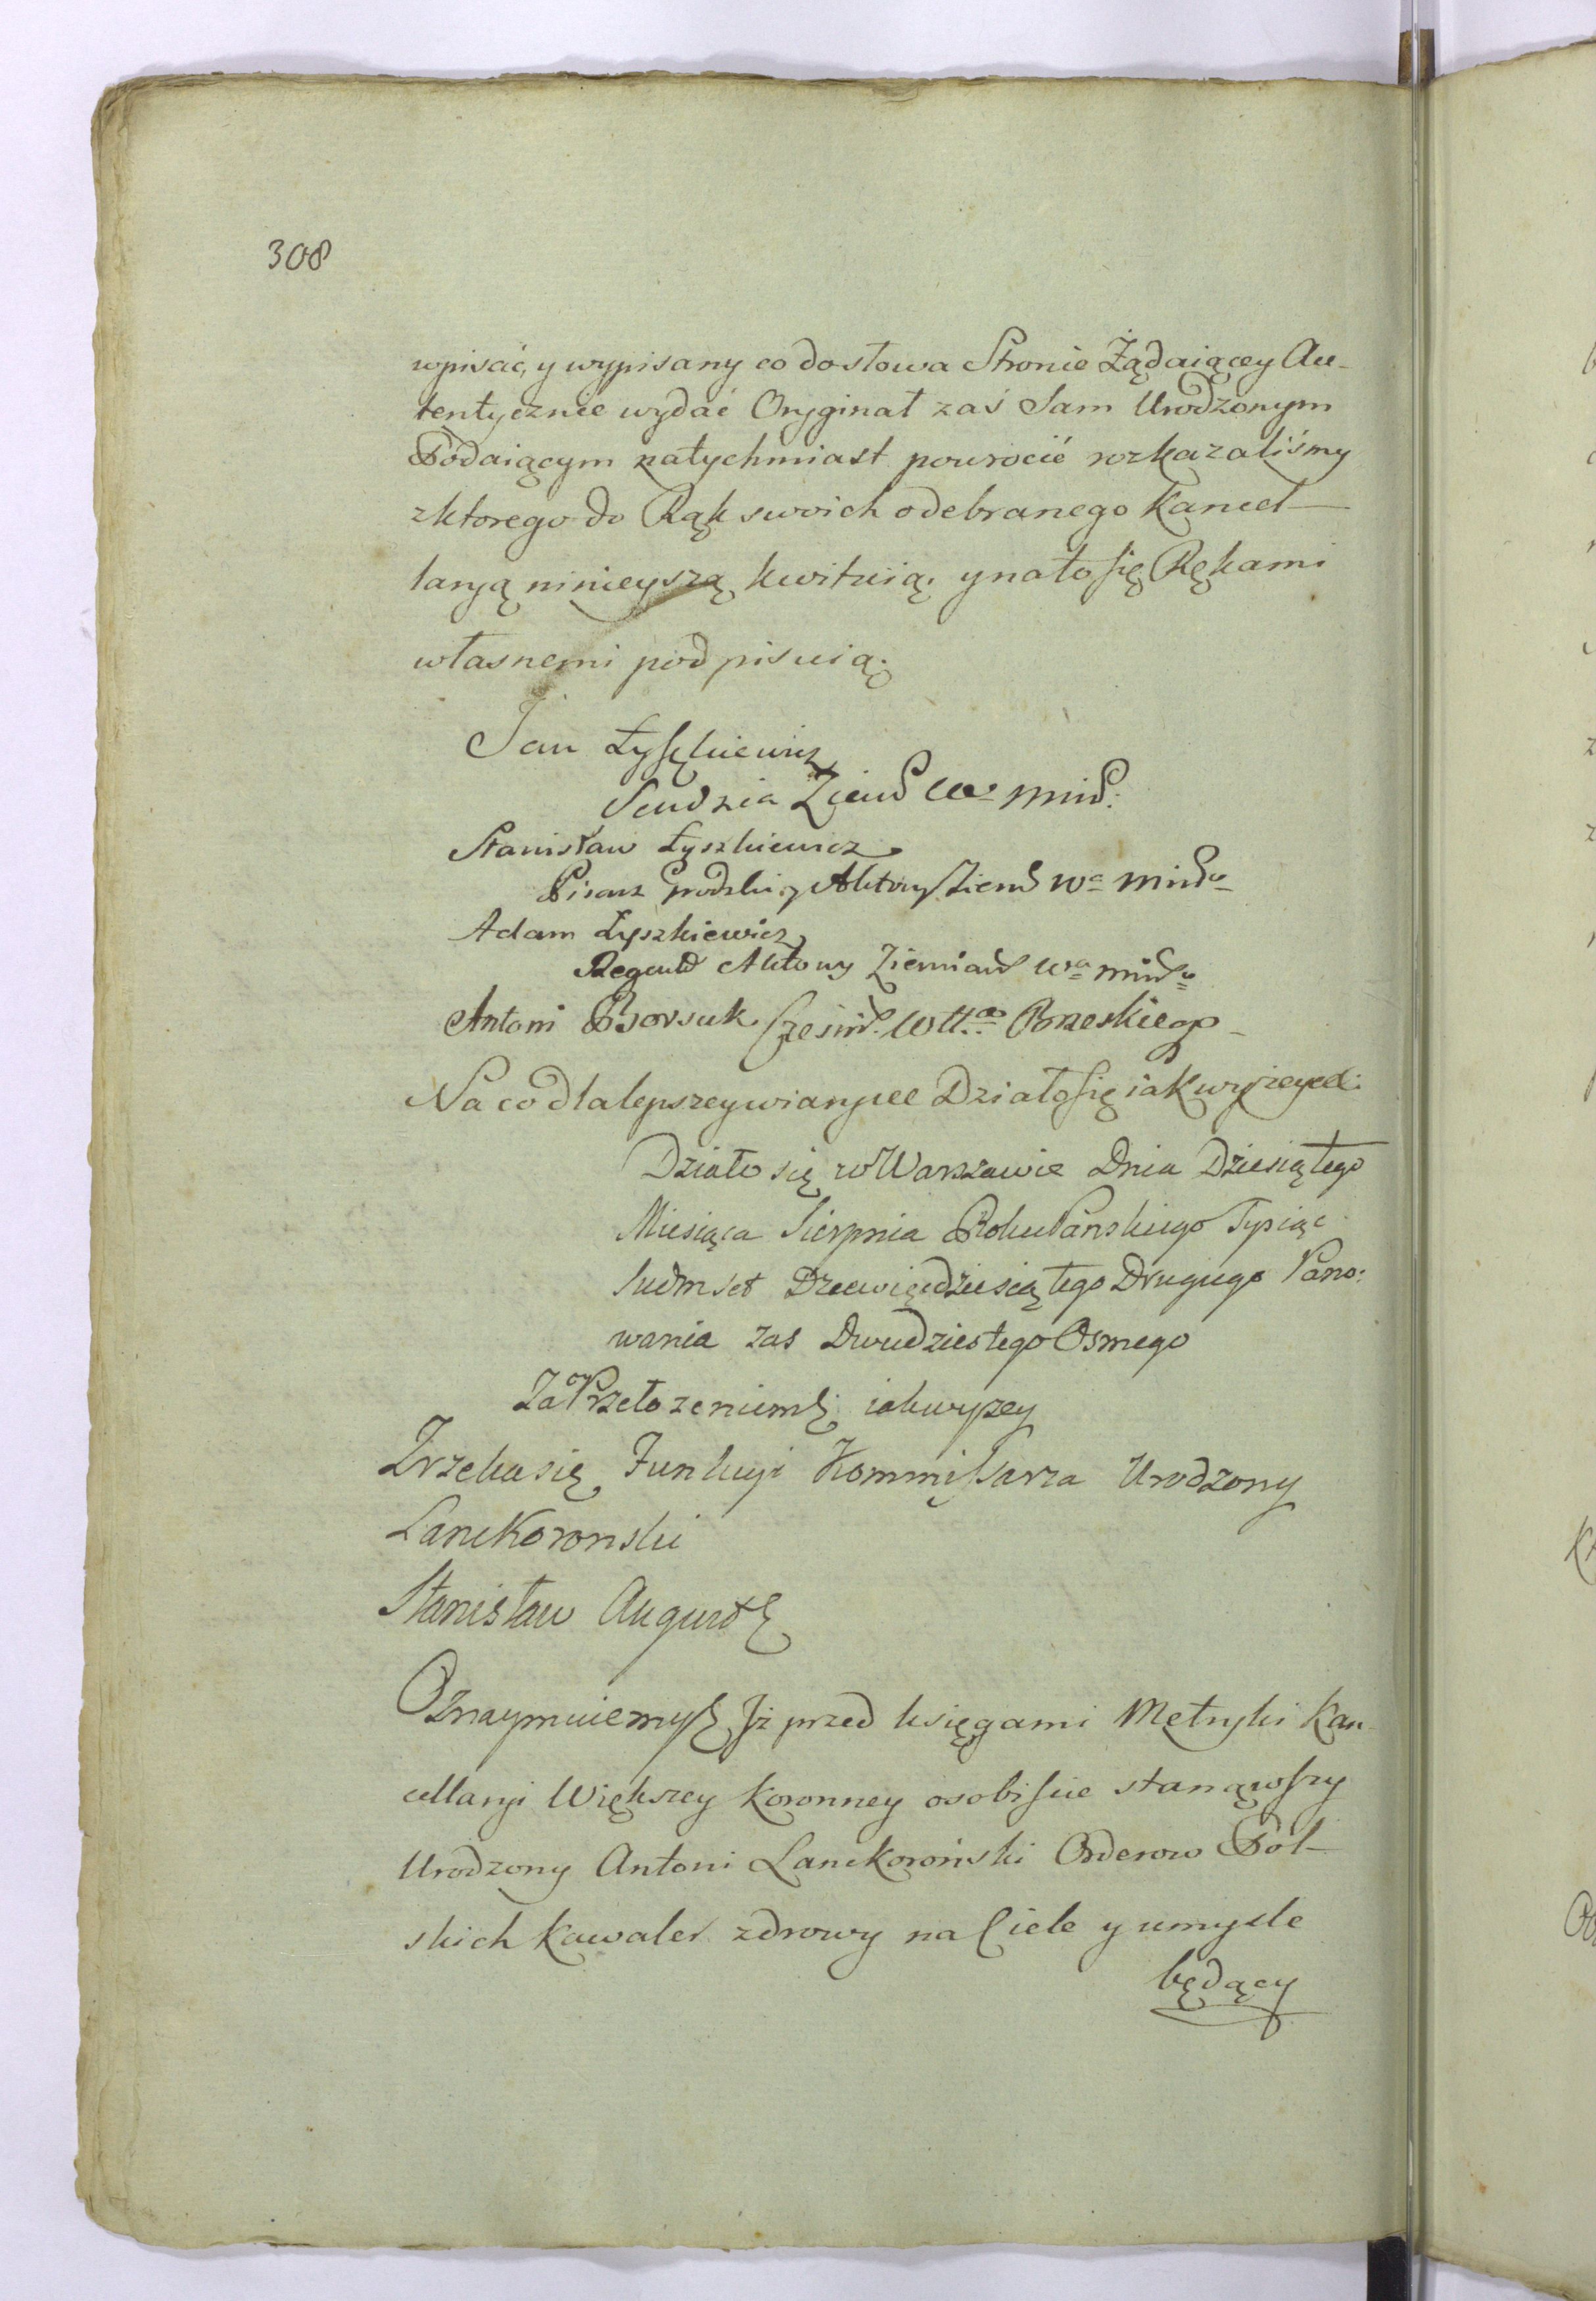 308
wpisać, y wypisany co do słowa Stronie Żądaiącey Au-
tentycznie wydać Oryginał zaś Sam Urodzonym
Podaiącym natychmiast powrocić rozkazaliśmy
z ktorego do Rąk swoich odebranego Kancel-
laryą ninieyszą kwituią. y na to się Rękami
własnemi podpisuią.
Jan Łyszkiewicz
Sendzia Ziem Wa Miń:
Stanisław Łyszkiewicz
Pisarz Grodzki y Aktowy Ziem Wa Mińo
Adam Łyszkiewicz
Regent Aktowy Ziemiań Wa Mińo
Antoni Borsuk Cześni. Wttwa Brzeskiego
Na co dla lepszey wiary ect Działo się iak wyżey ect:
Działo się w Warszawie Dnia Dziesiątego
Miesiąca Sierpnia Roku Pańskiego Tysiąc
Siedmset Dziewięćdziesiątego Drugiego Pano:
wania zas Dwudziestego Osmego
Za Przełożeniem iak wyzey
Zrzeka się Funkcyi Kommissarza Urodzony
Lanckoronski
Stanisław August
Oznaymuiemy Jż przed księgami Metryki Kan-
cellaryi Większey Koronney osobiscie stanąwszy
Urodzony Antoni Lanckoroński Orderow Pol-
skich Kawaler zdrowy na Ciele y umysle
będący